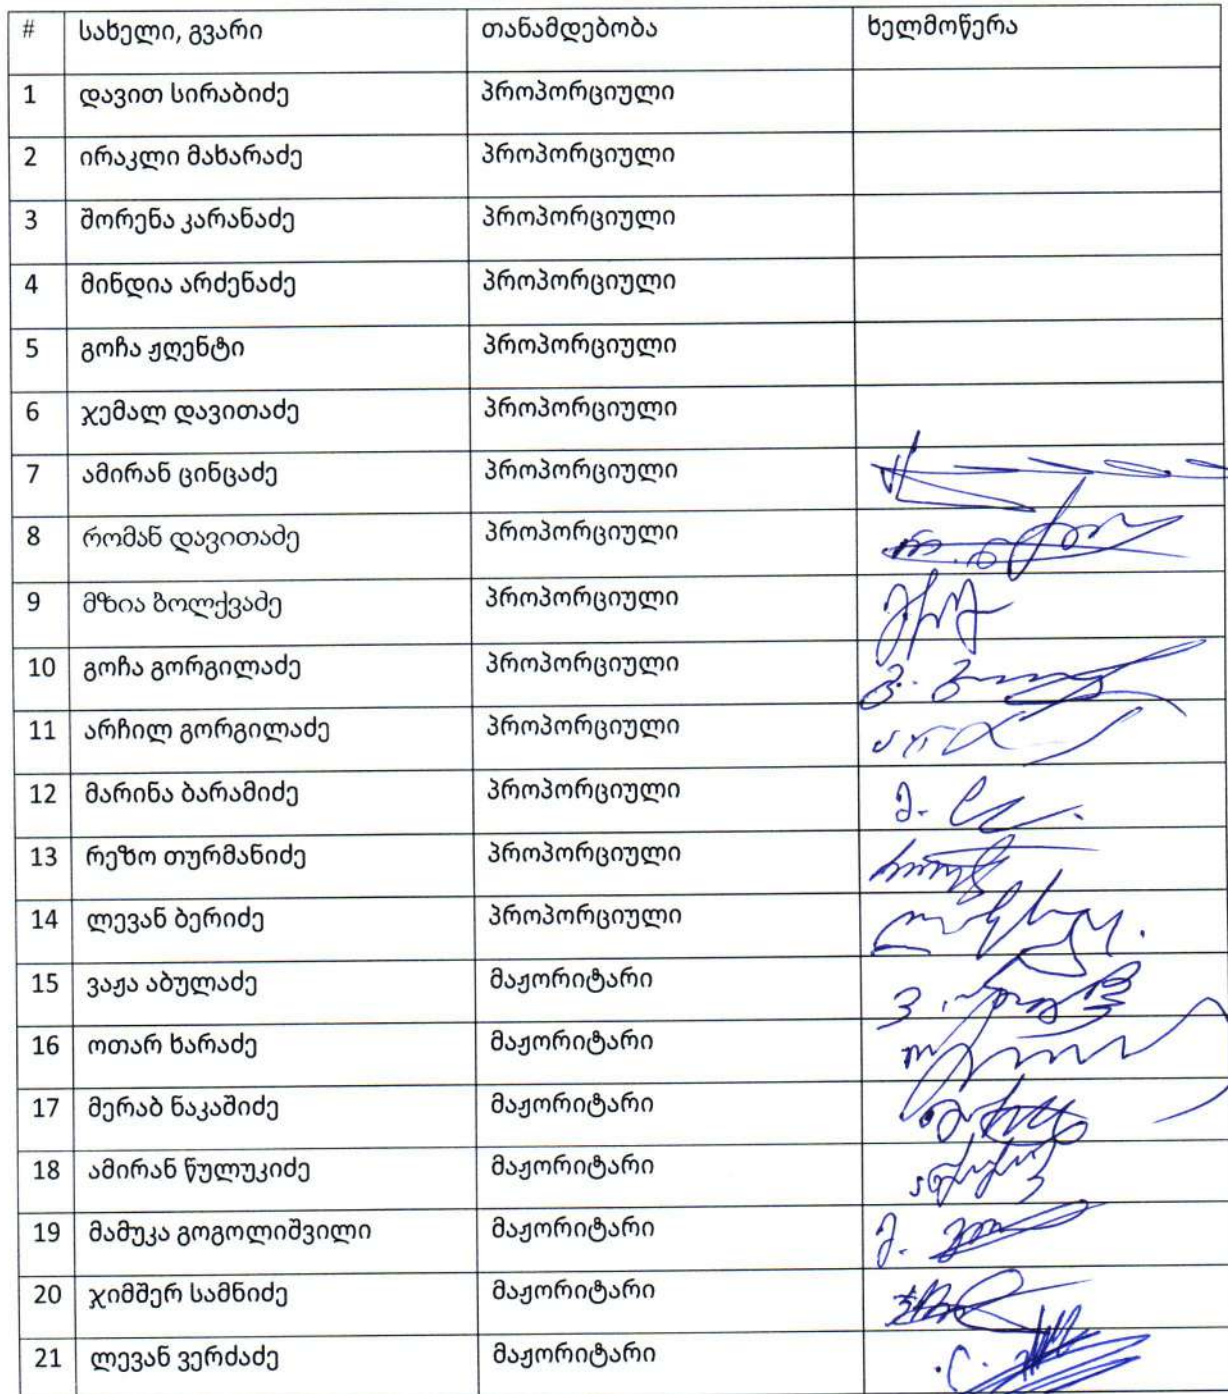 # სახელი, გვარი თანამდებობა ხელმოწერა
1 დავით სირაბიძე პროპორციული
2 ირაკლი მახარაძე პროპორციული
3 შორენა კარანაძე პროპორციული
4 მინდია არძენაძე პროპორციული
5 გოჩა ჟღენტი პროპორციული
6 ჯემალ დავითაძე პროპორციული
7 ამირან ცინცაძე პროპორციული
8 რომან დავითაძე პროპორციული
9 მზია ბოლქვაძე პროპორციული
10 გოჩა გორგილაძე პროპორციული
11 არჩილ გორგილაძე პროპორციული
12 მარინა ბარამიძე პროპორციული
13 რეზო თურმანიძე პროპორციული
14 ლევან ბერიძე პროპორციული
15 ვაჟა აბულაძე მაჟორიტარი
16 ოთარ ხარაძე მაჟორიტარი
17 მერაბ ნაკაშიძე მაჟორიტარი
18 ამირან წულუკიძე მაჟორიტარი
19 მამუკა გოგოლიშვილი მაჟორიტარი
20 ჯიმშერ სამნიძე მაჟორიტარი
21 ლევან ვერძაძე მაჟორიტარი